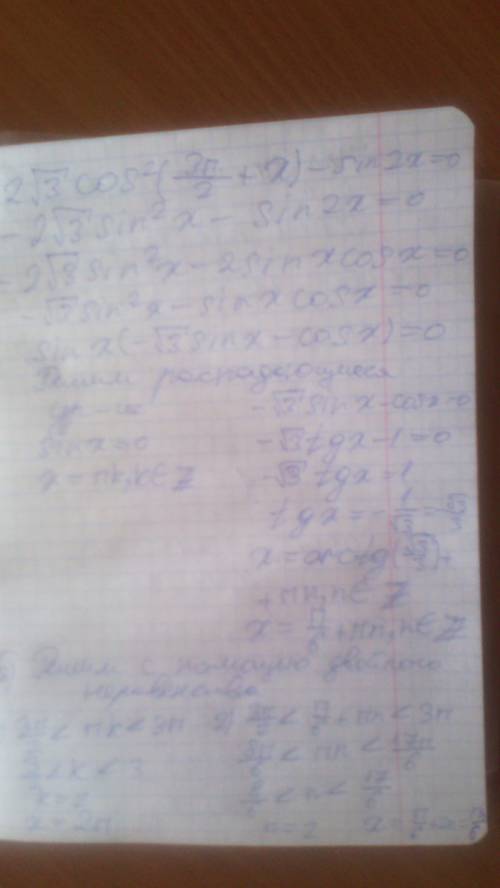 2√3 cos²(3π/2 + x) - sin2x=0
- 2√3 sin²x - sin2x=0
- 2√3 sin²x - 2sinxcosx=0
- √3 sin²x - sinxcosx=0
sinx(-√3 sinx - cosx)=0
Решим распадающиеся
ур-ие
sinx=0
x=πk, k∈Z
-√3 sinx-cosx=0
-√3 tgx-1=0
-√3 tgx=1
tgx=-1/√3=
x=arctg
+πn, n∈Z
x=π/6+πn, n∈Z
Решим с помощью двойного
неравенства
<πk<3π
<k<3
k=2
x=2π
2) <π/6+πn<3π
<πn<17π/6
<n<17/6
n=2 x=